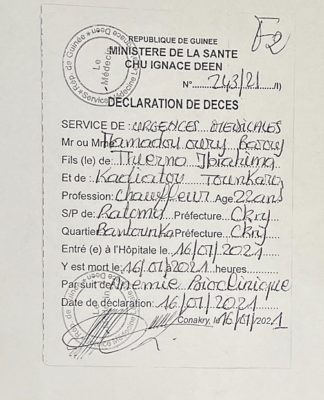 F2
REPUBLIQUE DE GUINEE
MINISTERE DE LA SANTE
CHU IGNACE DEEN
N° 243/21 /I)
DÉCLARATION DE DECES
SERVICE DE: URGENCES MEDICALES
Mr ou Mme Mamadou oury Barry
Fils (le) de Thierno Ibrahima
Et de Kadiatou Tounkara
Profession: Chauffeur Age: 22 ans
S/P de: Ratoma Préfecture: Ckry
Quartier Bantounka Préfecture: Ckry
Entré (e) à l'Hôpitale le 16/07/2021
Y est mort le: 16/07/2021 heures
Par suit de Anemie Bioclinique
Date de déclaration: 16/07/2021
Conakry, le 16/07/2021
Le Médecin